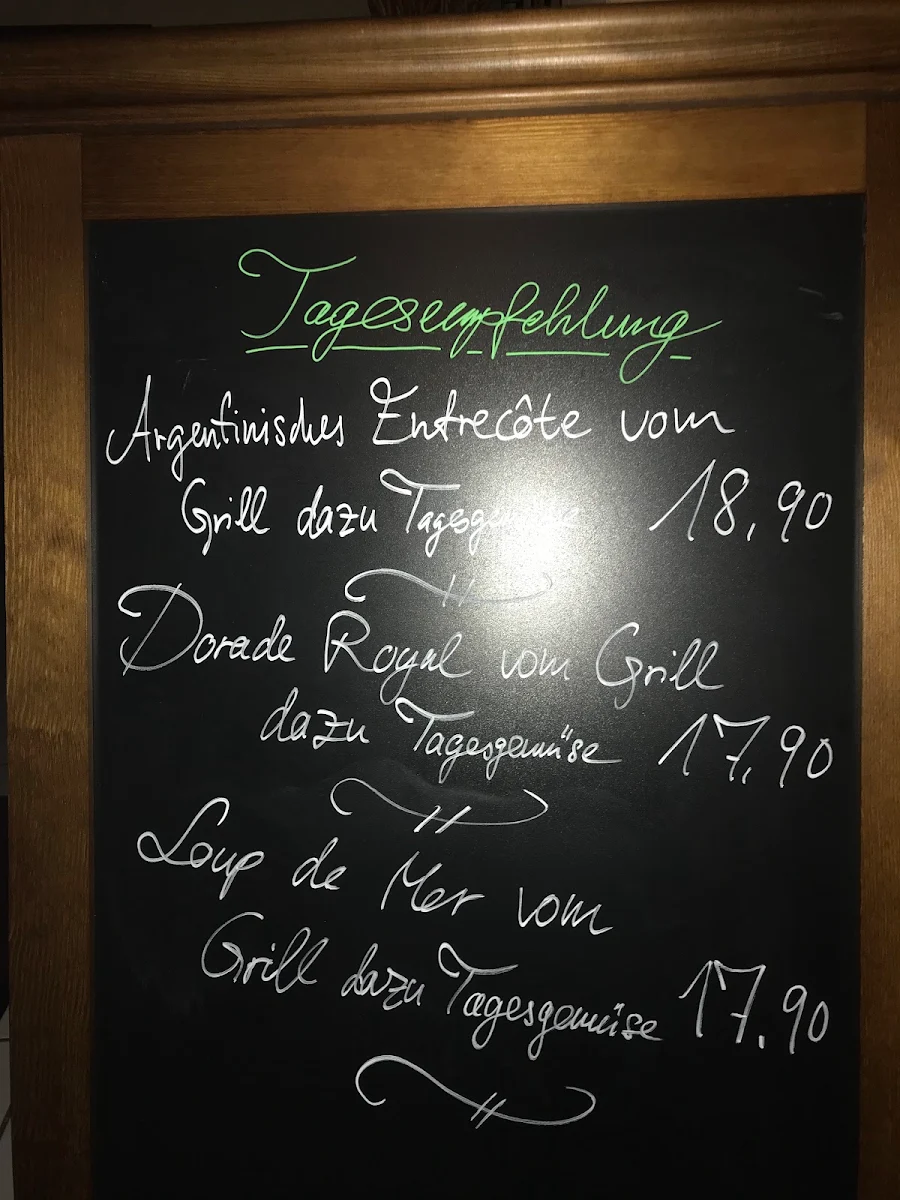 Tagesempfehlung
Argentinisches Entrecôte vom
Grill dazu Tagesgemüse 18,90
Dorade Royal vom Grill
dazu Tagesgemüse 17,90
Loup de Mer vom
Grill dazu Tagesgemüse 17.90